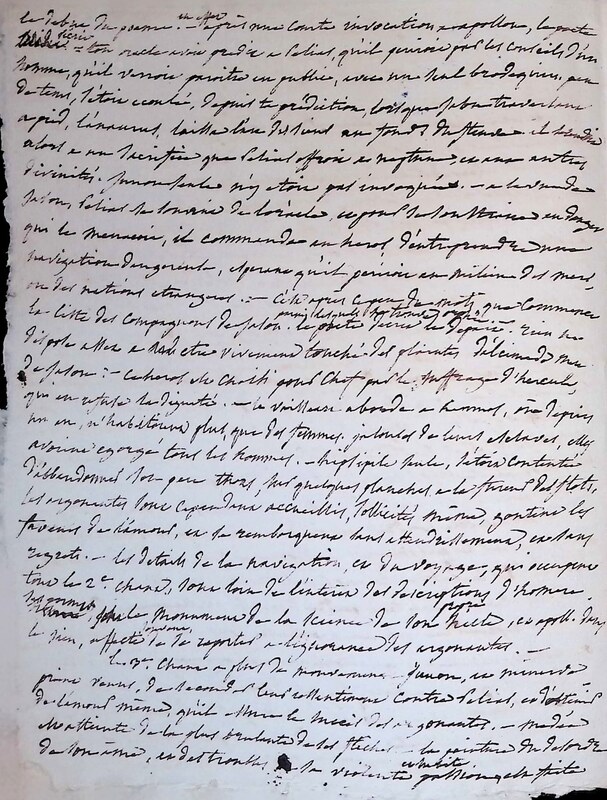 le début du poeme. en effet après une courte invocation a apollon, le poete
décrit – ton oracle avoit predit a Pelias, qu'il periroit par les conseils d'un
homme, qu'il verroit paroitre en public, avec un seul brodequin, peu
de tems, s'étoit écoulé, depuis la prédiction, lorsque Jason traversant
a pied, l'anaurus, laissa l'un des siens au fond du fleuve. il
alors a un sacrifice que Pelias offroit a neptune et aux autres
divinités. Junon seule n'y étoit pas invoquée. – a la vue de
Jason, Pelias se souvint de l'oracle, et pour se soustraire au danger
qui le menacoit, il commanda au heros d'entreprendre une
navigation dangereuse, esperant qu'il periroit au milieu des mers
ou des nations etrangeres. – C'est après ce peu de mots que commence
la liste des compagnons de Jason. parmi lesquels orphée. le poete décrit le départ. rien ne
dispose assez a etre vivement touché des plaintes d'alcimede mere
de Jason. – ce heros est choisi pour chef par le suffrage d'hercule,
qui en refuse la dignité. – le vaisseau aborde a lemnos, où depuis
un an, n'habitoient plus, que des femmes. jalouses de leurs esclaves, elles
avoient egorgé tous les hommes. – hypsipile seule, s'étoit contentée
d'abandonner son pere thoas, sur quelques planches, a la fureur des flots.
les argonautes sont cependant accueillis, sollicités même, goutent les
faveurs de l'amour, et se rembarquent sans attendrissement, et sans
regrets. – les details de la navigation, et du voyage, qui occupent
tout le 2e chant, sont loin de l'interet des descriptions d'homere.
le monument de la science de son siecle, et apoll. dans
le sien, affecte de se reporter a l'ignorance des argonautes. –
le 3e. chant a plus de mouvement. Junon, et minerve
prient venus, de seconder leur contre Pelias, et d'obtenir
de l'amour même, qu'il assure le succès des argonautes. – medée
est atteinte de la plus brulante de ses fleches – la peinture du desordre
de son ame, et des troubles de sa violente passion, est faite